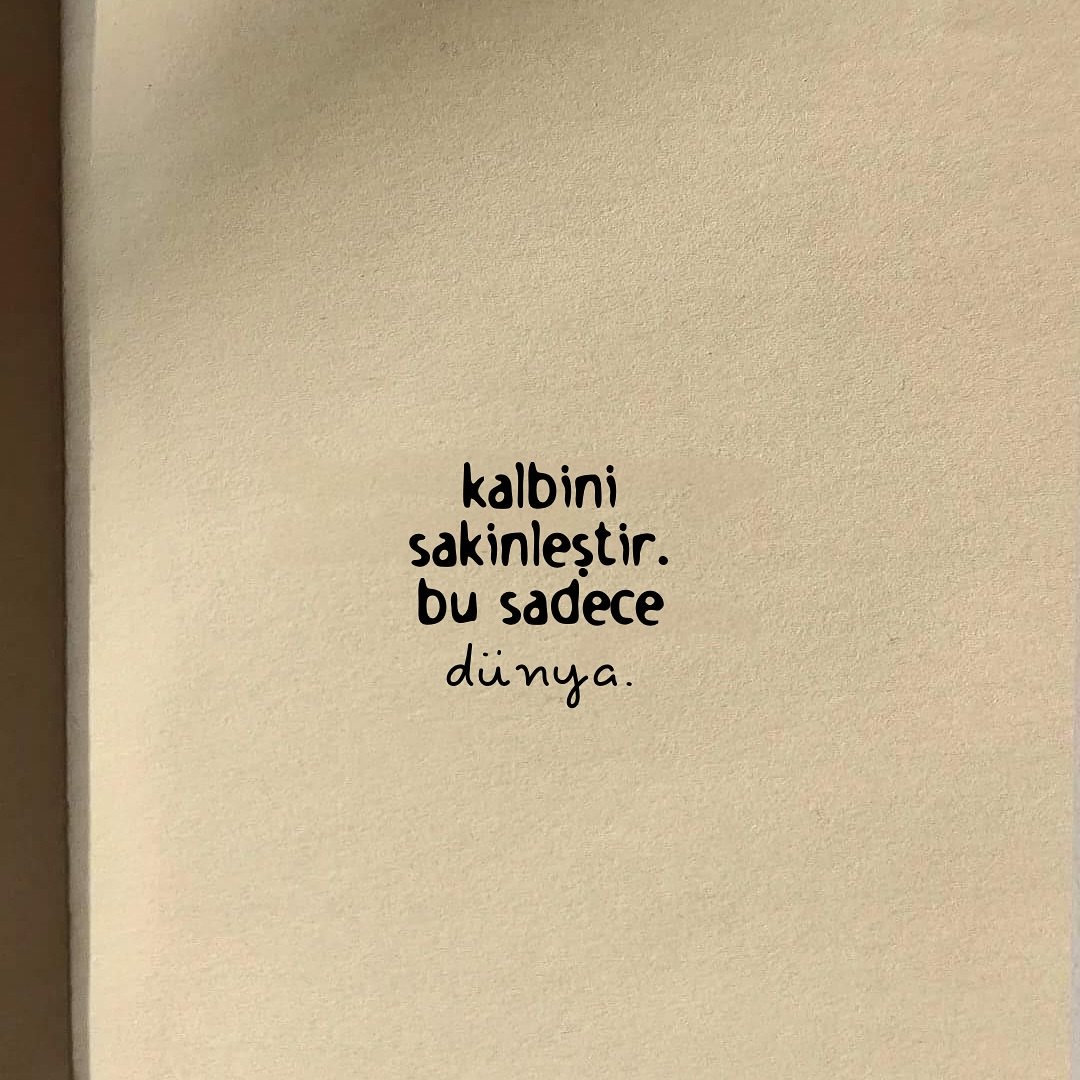 kalbini
sakinleştir.
bu sadece
dünya.